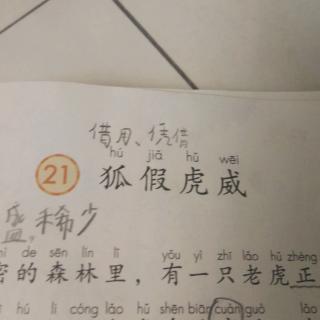 借用、凭借
hú jiǎ hǔ wēi
21 狐假虎威
盛，稀少
de sēn lín lǐ yǒu yì zhī lǎo hǔ zhèng
密的森林里，有一只老虎正
hú li cóng lǎo hǔ shēn biān cuàn guò lǎo